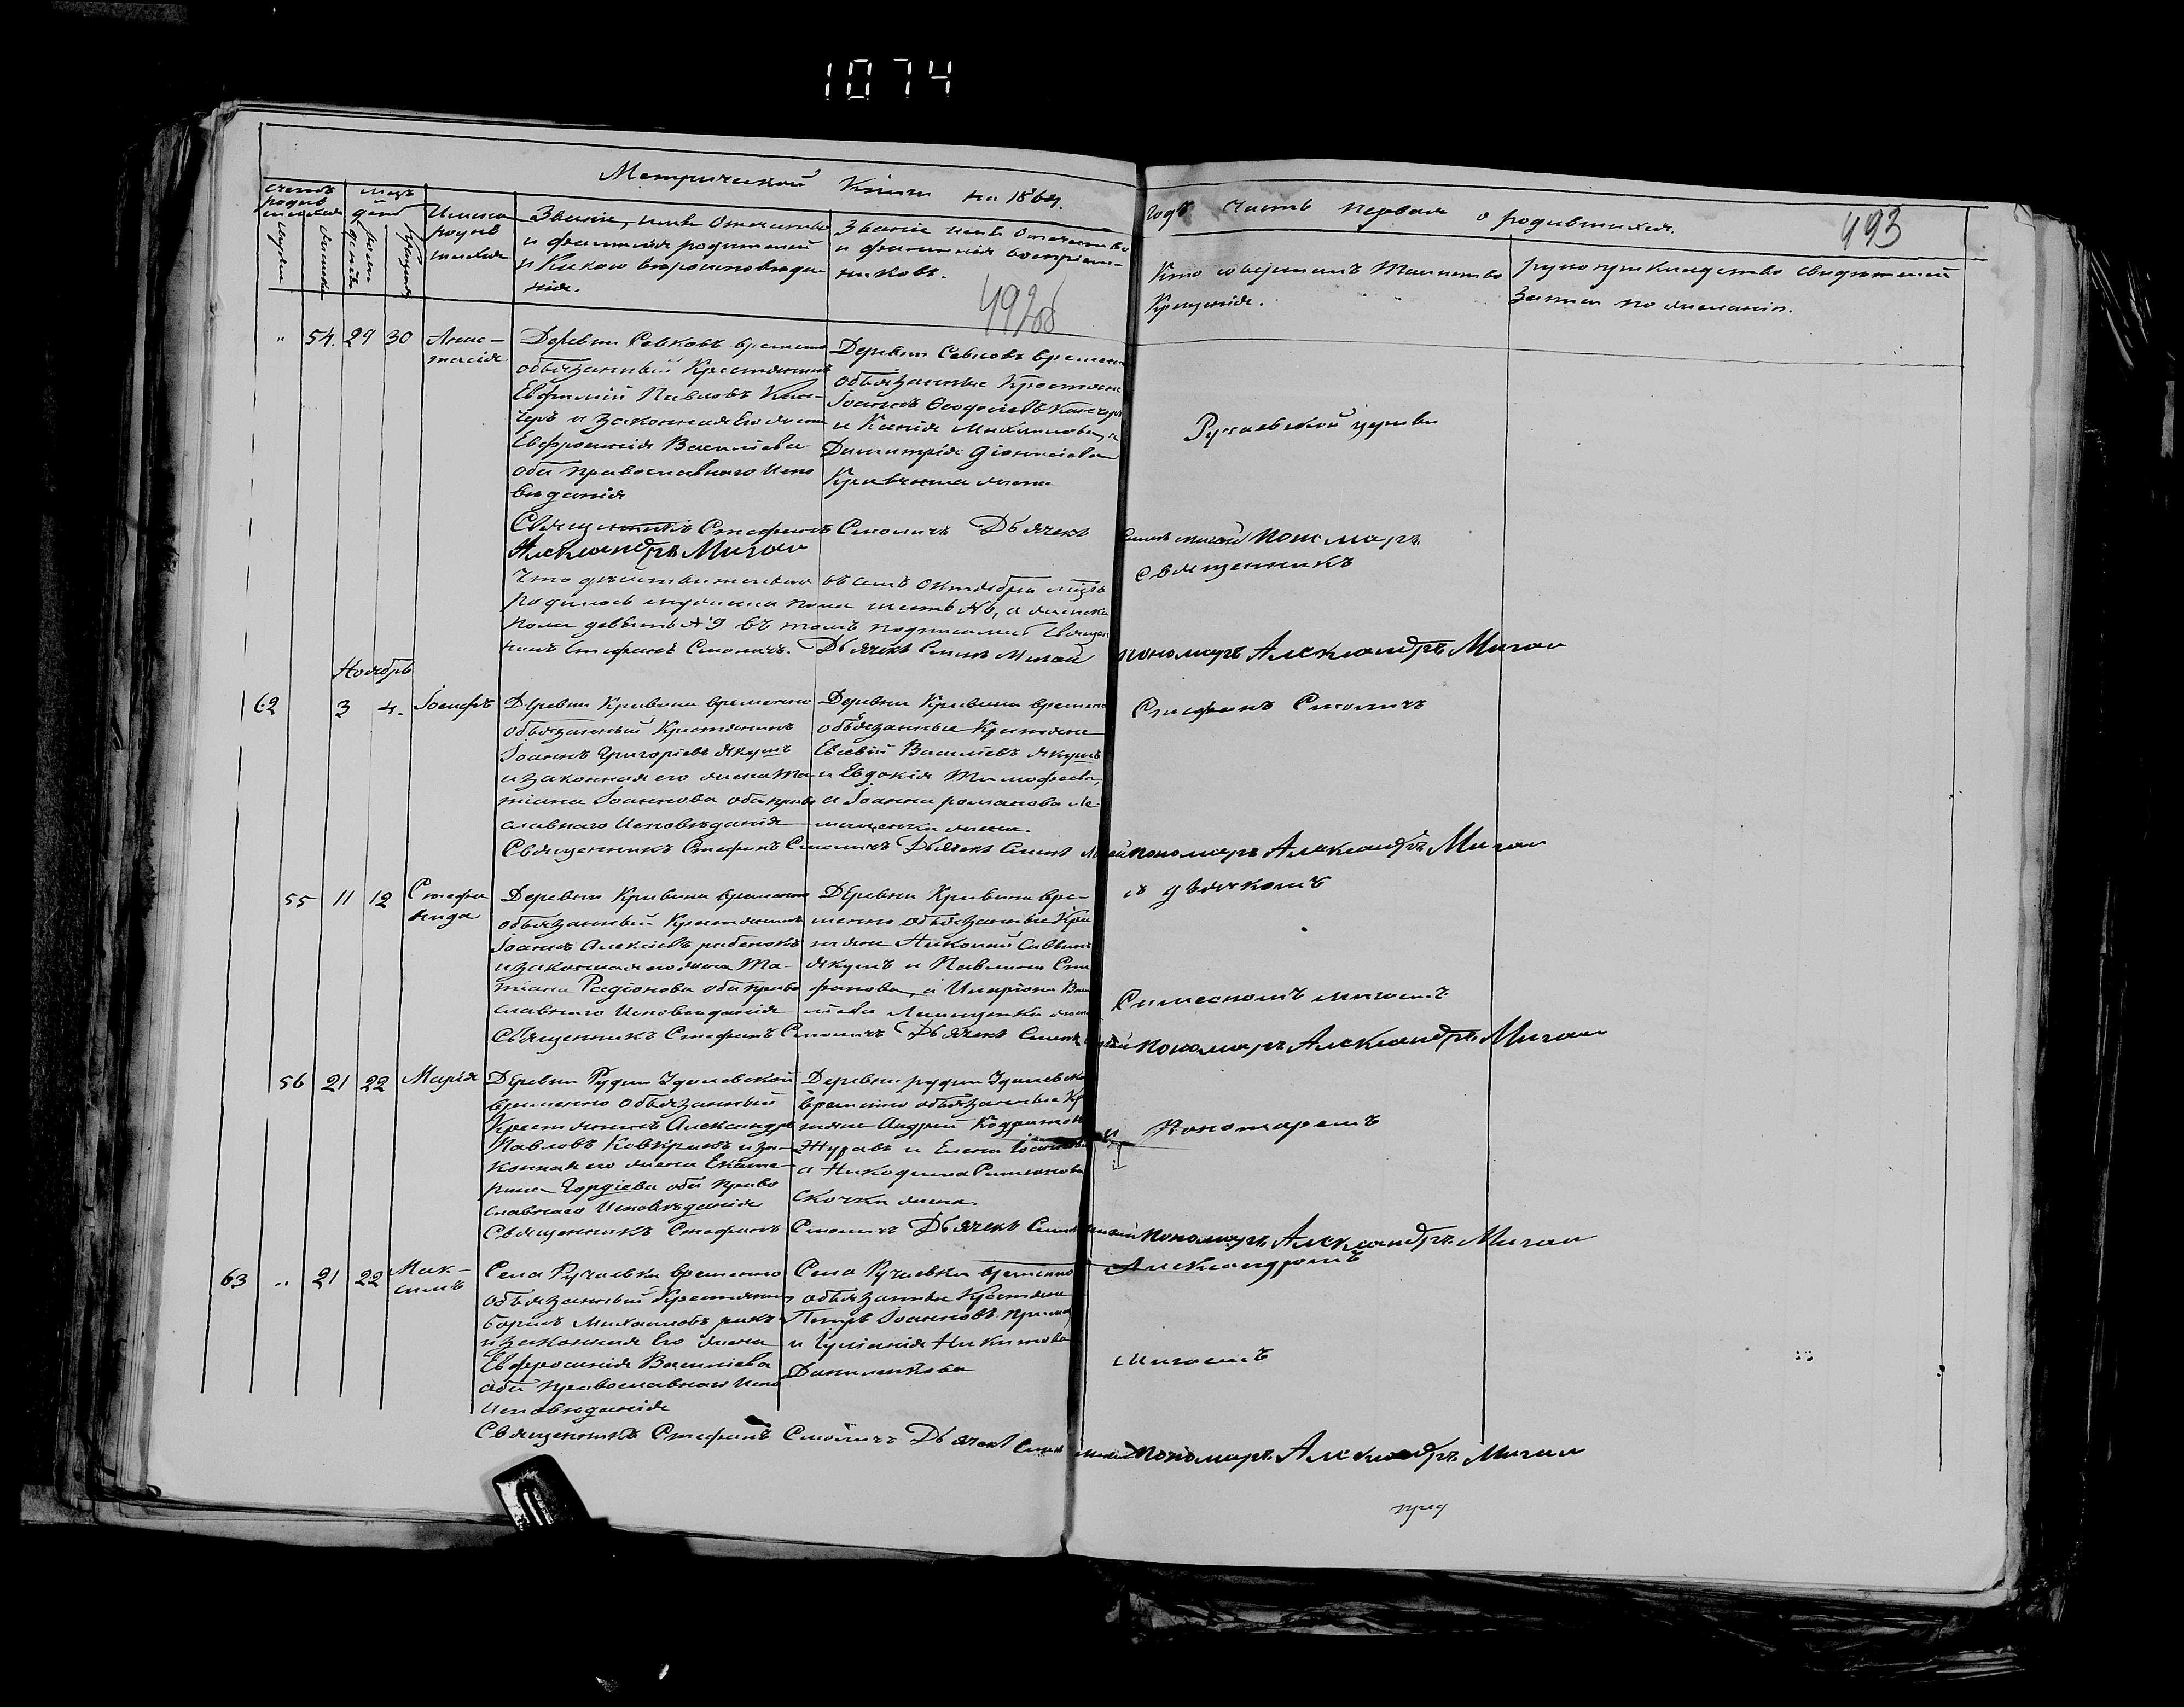 1074
Метрической Книги на 1864
годъ часть первая о родившихся.
493
счетъ родившихся
мужеска
женска
мцъ день
рожденія
крещенія
Имена родившихся
Званіе, имя Отчество
и фамилія родителей
и Какого вѣроисповѣда-
нія.
Званіе имя Отчество
и фамилія воспріем-
никовъ.
492об
Кто совершалъ Таинство
Крещенія.
рукоприкладство свидетелей
записи по желанію.
" 54. 29 30 Анас-
тасія
Деревни Севковъ временно
обязанный Крестьянинъ
Евфимій Павловъ
и законная Его жена
Евфросинія Василіева
оба православнаго испо
вѣданія
Деревни Севковъ временно
обязанные Крестьяне
Іоаннъ Ѳеодосіевъ
и Ксенія Михаилова, а
Димитрія Діонисіева
Кравченка жена
Ручаевской церкви
Священникъ Стефанъ Смоличъ Дьячекъ Симеонъ Мигай Пономарь
Александръ Мигай
Священникъ
Что дѣйствительно въ семъ Октябрѣ мцѣ
родилось мужеска пола шесть №6, а женска
пола девять №9 въ томъ подписались Священ
никъ Стефанъ Смоличъ. Дьячекъ Симеонъ Мигай Пономарь Александръ Мигай
Ноябрь
62 3 4. Іосифъ
Деревни Кривина временно
обязанный Крестьянинъ
Іоаннъ Григоріевъ Якушъ
и законная его жена Та-
тіана Іоаннова оба право
славнаго Исповѣданія
Деревни Кривина временно
обязанные Крестьяне
Евсевій Василіевъ Якушъ
и Евдокія Тимофеева,
а Іоанна романова Ле-
мещенка жена.
Стефанъ Смоличъ
Священникъ Стефанъ Смоличъ Дьячекъ Симеонъ Мигай Пономарь Александръ Мигай
55 11 12 Стефа
нида
Деревни Кривина временно
обязанный Крестьянинъ
Іоаннъ Алексіевъ рабенокъ
и законная его жена Та-
тіана Радіонова оба право
славнаго Исповѣданія
Деревни Кривина вре-
менно обязанные Кре
стьяне Николай Саввинъ
Якушъ и Павлина Сте
фанова, а Иларіона Васи
ліева Лемещенка жена
съ дьячкомъ
Симеономъ Мигаемъ
Священникъ Стефанъ Смоличъ Дьячекъ Симеонъ Мигай Пономарь Александръ Мигай
56 21 22 Марія
Деревни Рудни Удалевской
временно обязанный
Крестьянинъ Александръ
Павловъ Ковкрикъ и за-
конная его жена Екате-
рина Гордіева оба право
славнаго Исповѣданія
Деревни рудни Удалевской
временно обязанные Кре
стьяне Андрей Кодратовъ
Журавъ и Елена Іоаннова
а Никодима Симеонова
Скочка жена.
и Пономаремъ
Священникъ Стефанъ Смоличъ Дьячекъ Симеонъ Мигай Пономарь Александръ Мигай
63 " 21 22 Мак-
симъ
Села Ручаевки временно
обязанный Крестьянинъ
Борисъ Михаиловъ ракъ
и законная Его жена
Евфросинія Василіева
оба православнаго Испо
Исповѣданія
Села Ручаевки временно
обязанные Крестьяне
Петръ Іоанновъ
и Гуліанія Никитова
Даниленкова
Александромъ
Мигаемъ
Священникъ Стефанъ Смоличъ Дьячекъ Симеонъ Мигай Пономарь Александръ Мигай
пред